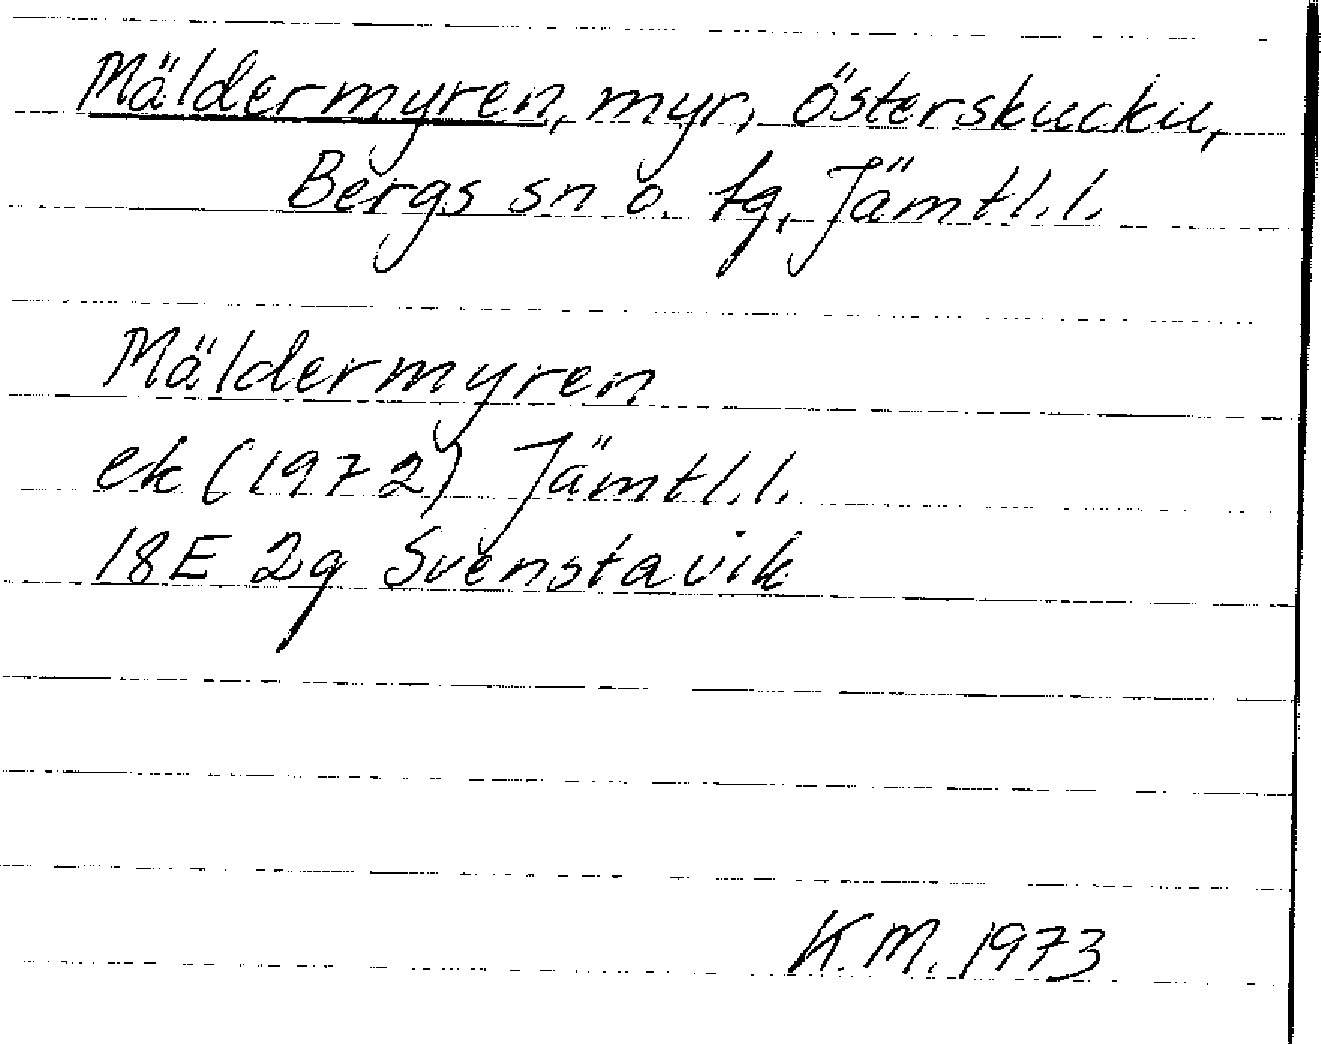 Mäldermyren, myr, Österskucku,
Bergs sn o. tg, Jämtl. l.
Mäldermyren
ek (1972) Jämtl. l.
18E 2g Svenstavik
K.M. 1973